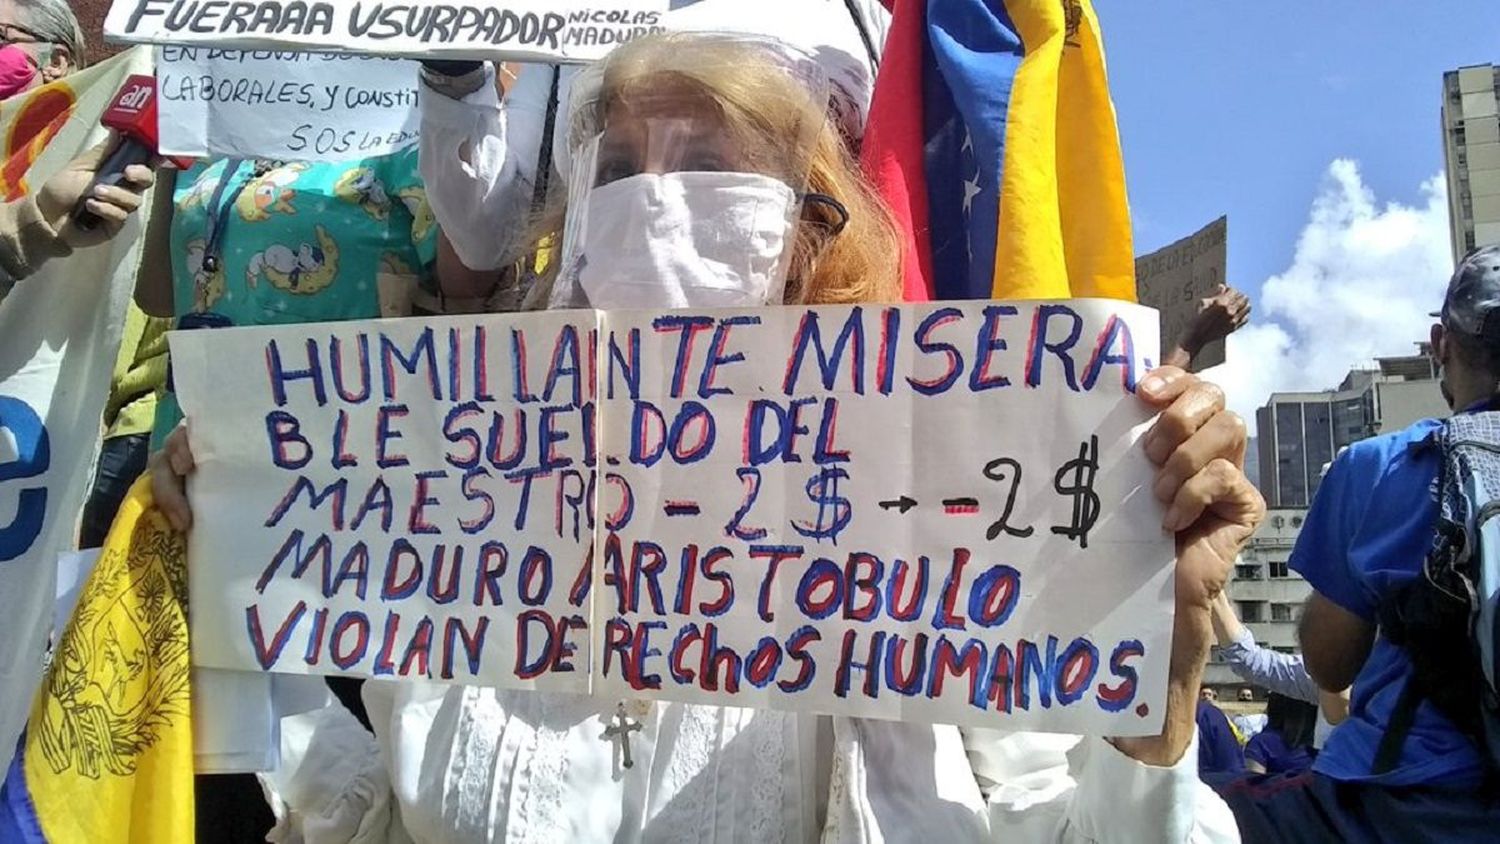 FUERAAA USURPADOR NICOLAS MADURO
EN DEFENSA
LABORALES, Y CONSTIT
SOS LA EDU
an
HUMILLANTE MISERA.
BLE SUELDO DEL
MAESTRO - 2 $ → - 2 $
MADURO ARISTOBULO
VIOLAN DERECHOS HUMANOS.
DE LA
LA SALUD
e